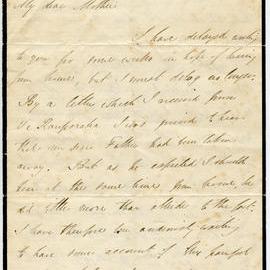 My dear Mother
I have delayed writing
to you for some weeks in hope of hearing
from home, but I must delay no longer.
By a letter which I received from
Te Rauparaha I was grieved to hear
that our dear Father had been taken
away. But as he expected I should
hear at the same time from home he
did little more than allude to the fact.
I have therefore been anxiously waiting
to have some account of this painful